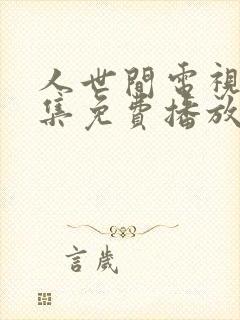 人世間電視
集免費播放
言歲